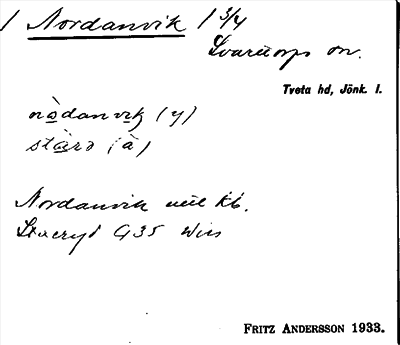 1 Nordanvik 1 3/4
Svarttorps sn.
Tveta hd, Jönk. l.
nòdanvik (y)
stàrd (à)
Nordanvik uti kb.
G35 Wiss
FRITZ ANDERSSON 1933.